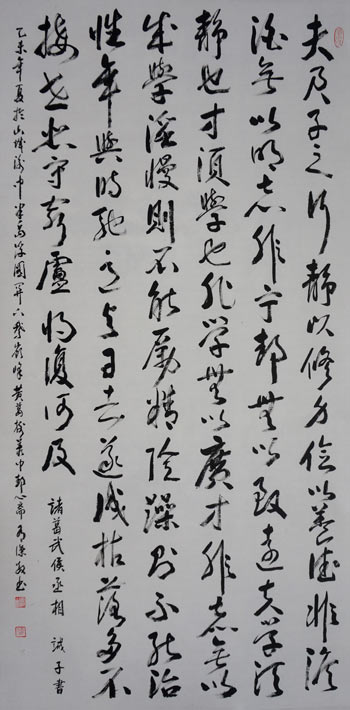 夫君子之行靜以修身儉以養德非澹
泊無以明志非寧靜無以致遠夫學須
靜也才須學也非學無以廣才非志無以
成學淫慢則不能勵精險躁則不能治
性年與時馳意與日去遂成枯落多不
接世悲守窮廬將復何及
諸葛武侯丞相 誡子書
乙未年夏於山城渝中半島浮圖關六